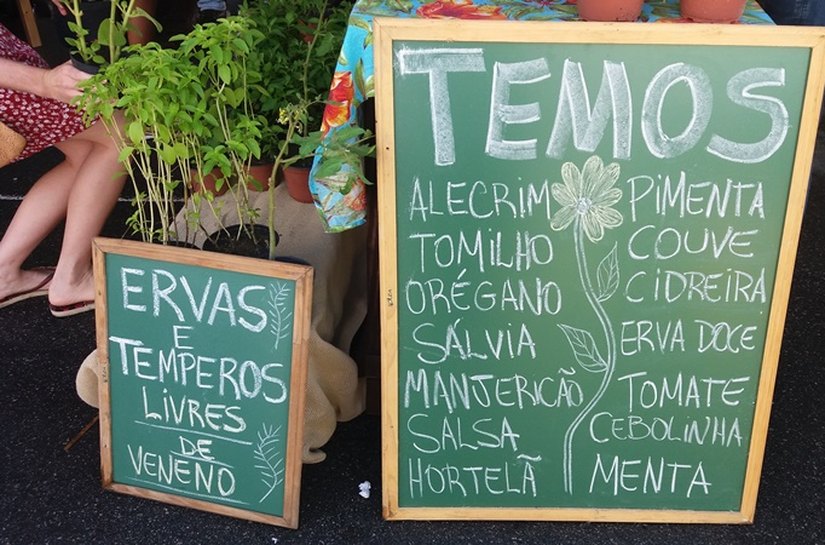 ERVAS
E
TEMPEROS
LIVRES
DE
VENENO
TEMOS
ALECRIM
TOMILHO
ORÉGANO
SÁLVIA
MANJERICÃO
SALSA
HORTELÃ
PIMENTA
COUVE
CIDREIRA
ERVA DOCE
TOMATE
CEBOLINHA
MENTA